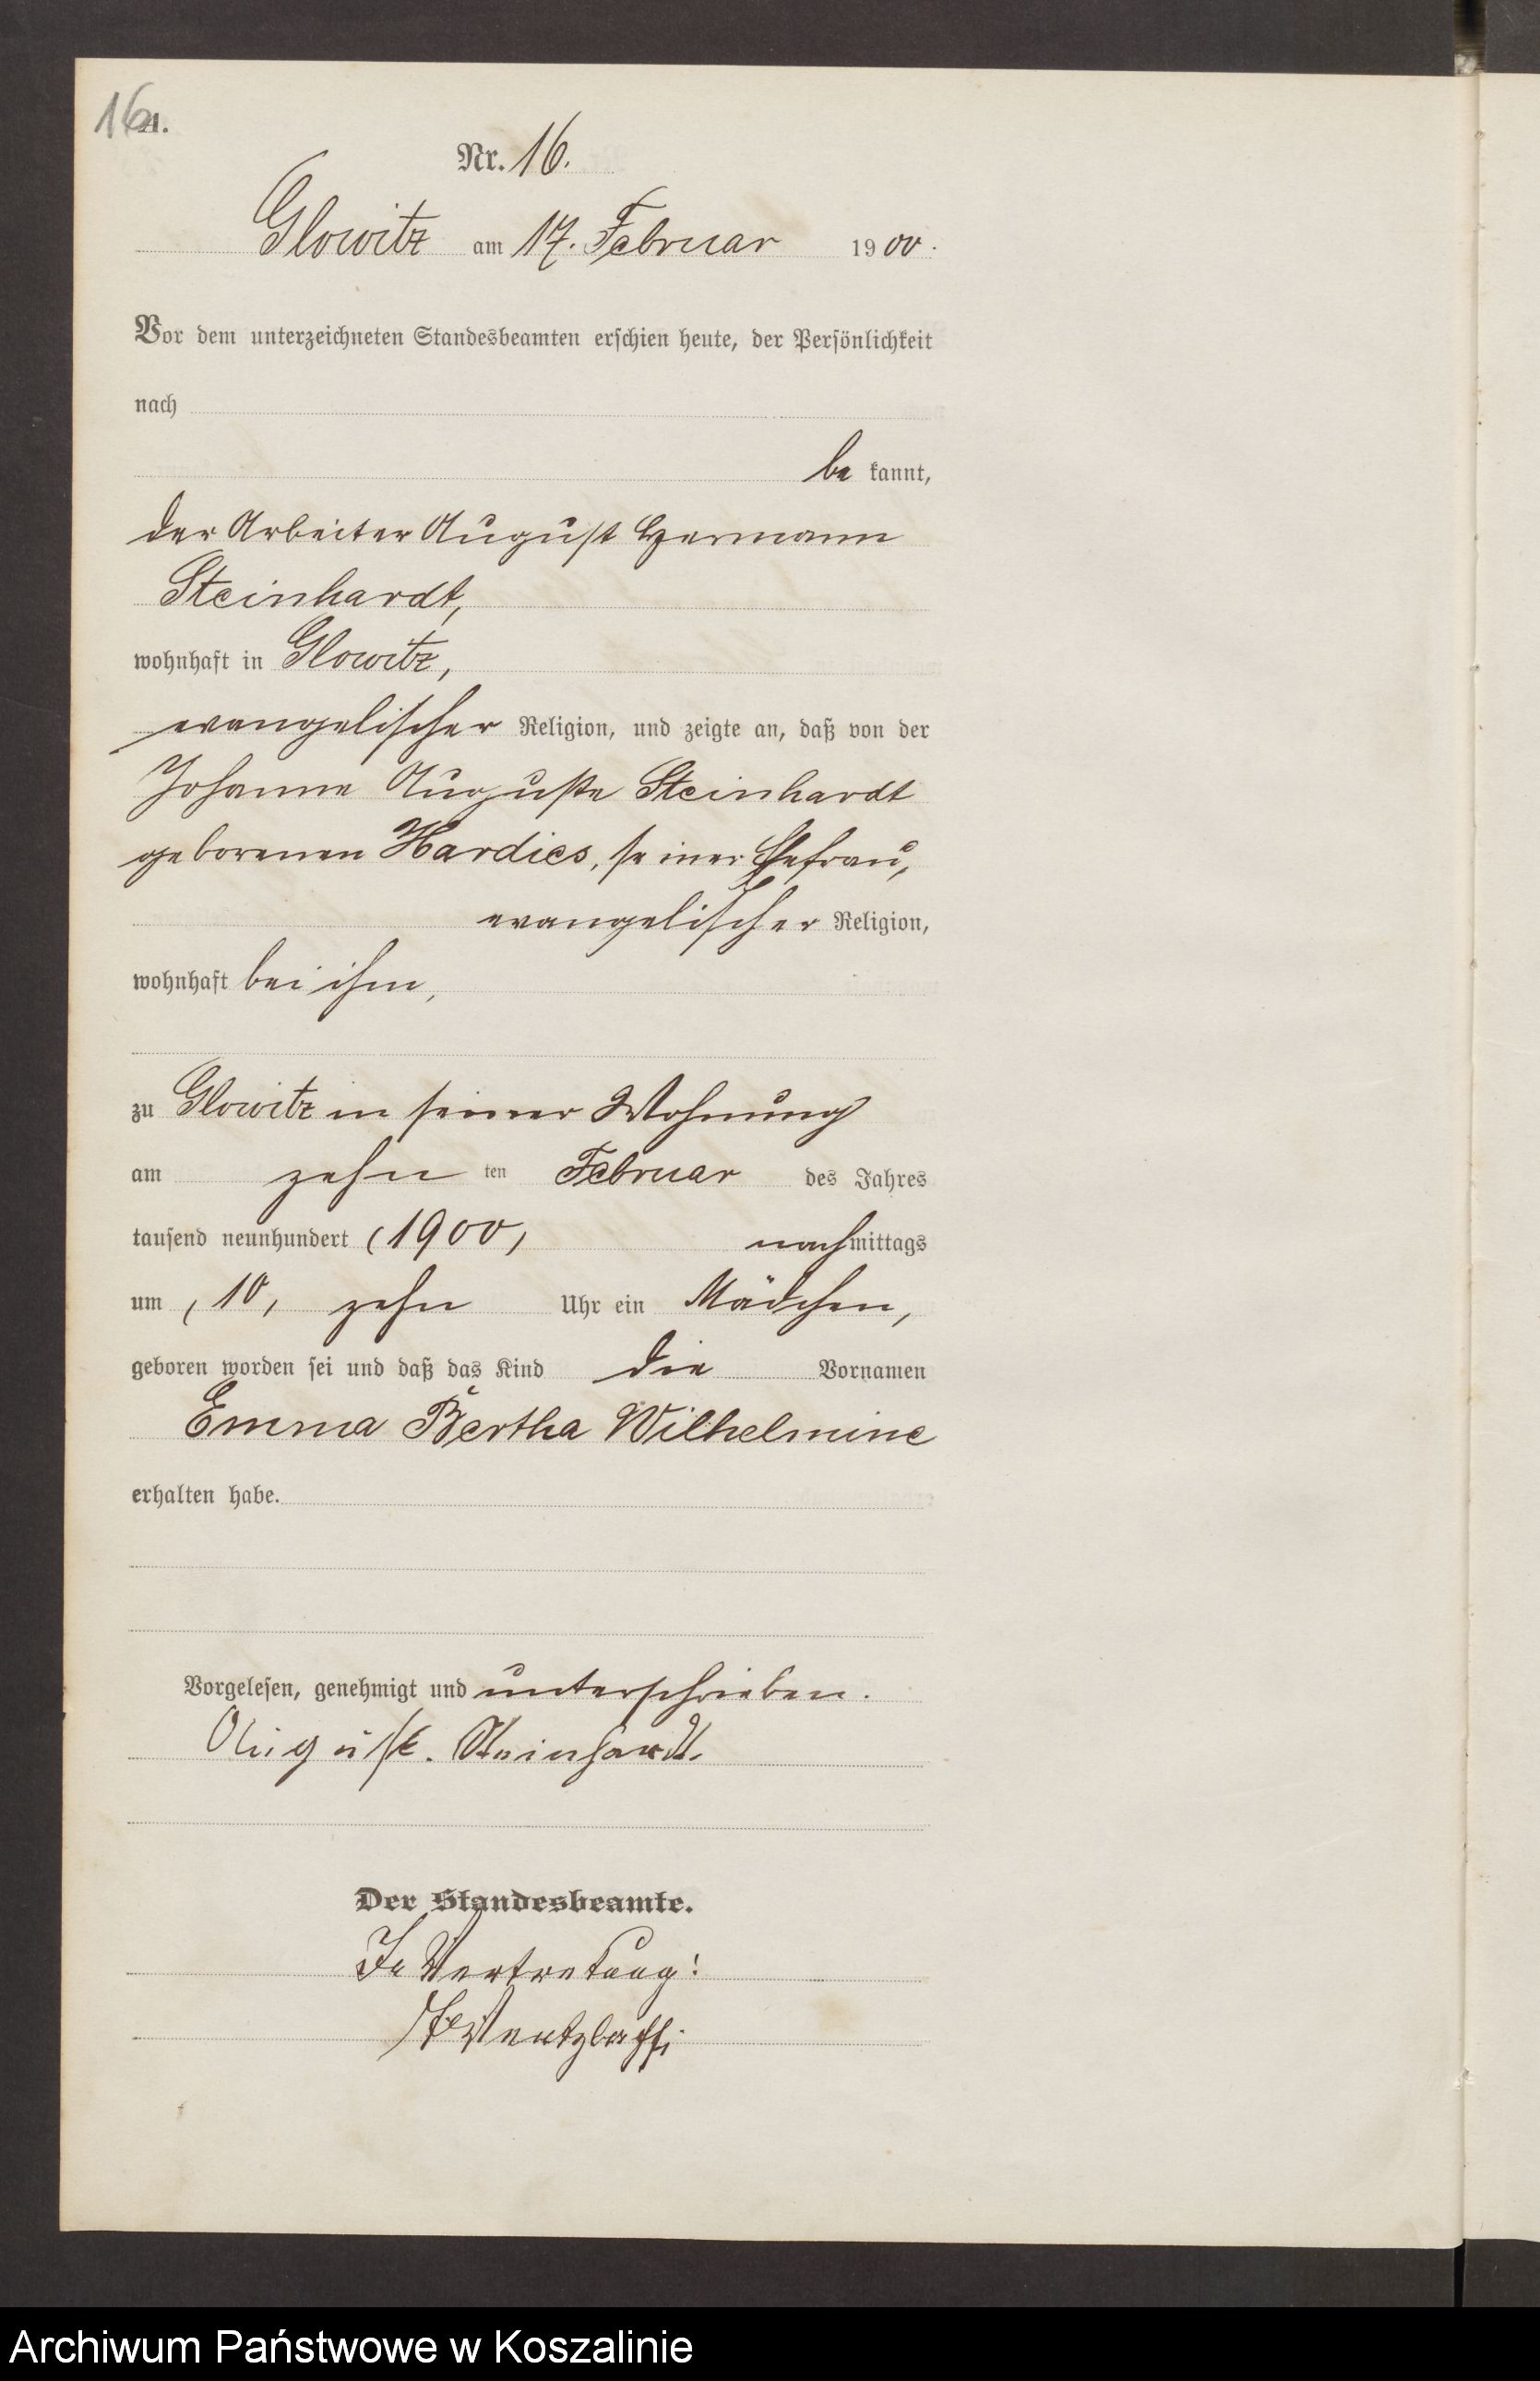 16
A.
Nr. 16.
Glowitz am 17. Februar 1900.
Vor dem unterzeichneten Standesbeamten erschien heute, der Persönlichkeit
nach
be kannt,
der Arbeiter August Hermann
Steinhardt,
wohnhaft in Glowitz,
evangelischer Religion, und zeigte an, daß von der
Johanne Auguste Steinhardt
geborenen Hardies, seiner Ehefrau,
evangelischer Religion,
wohnhaft bei ihm,
zu Glowitz in seiner Wohnung
am zehn ten Februar des Jahres
tausend neunhundert (1900) nachmittags
um (10) zehn Uhr ein Mädchen,
geboren worden sei und daß das Kind die Vornamen
Emma Bertha Wilhelmine
erhalten habe.
Vorgelesen, genehmigt und unterschrieben.
August. Steinhardt.
Der Standesbeamte.
In Vertretung:
Archiwum Państwowe w Koszalinie